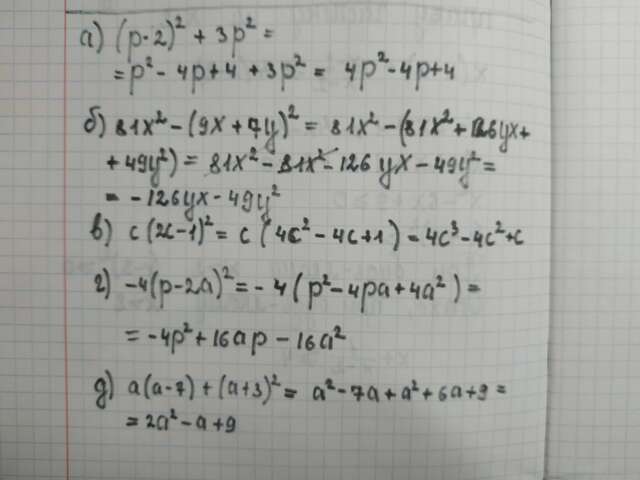 а) (p-2)² + 3p² =
= p² - 4p + 4 + 3p² = 4p² - 4p + 4
б) 81x² - (9x + 7y)² = 81x² - (81x² + 126yx +
+ 49y²) = 81x² - 81x² - 126yx - 49y² =
= - 126yx - 49y²
в) c(2c-1)² = c(4c² - 4c + 1) = 4c³ - 4c² + c
г) -4(p-2a)² = -4(p² - 4pa + 4a²) =
= -4p² + 16ap - 16a²
д) a(a-7) + (a+3)² = a² - 7a + a² + 6a + 9 =
= 2a² - a + 9